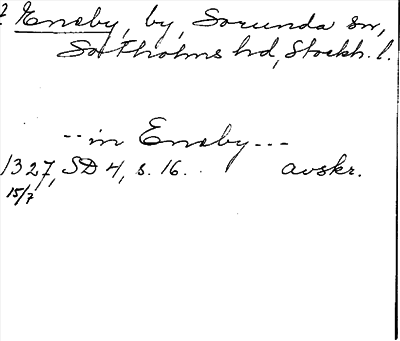 Eneby, by, Sorunda sn,
Sotholms hd, Stockh. l.
-- in Eneby ---
1327, SD 4, s. 16. avskr.
15/7